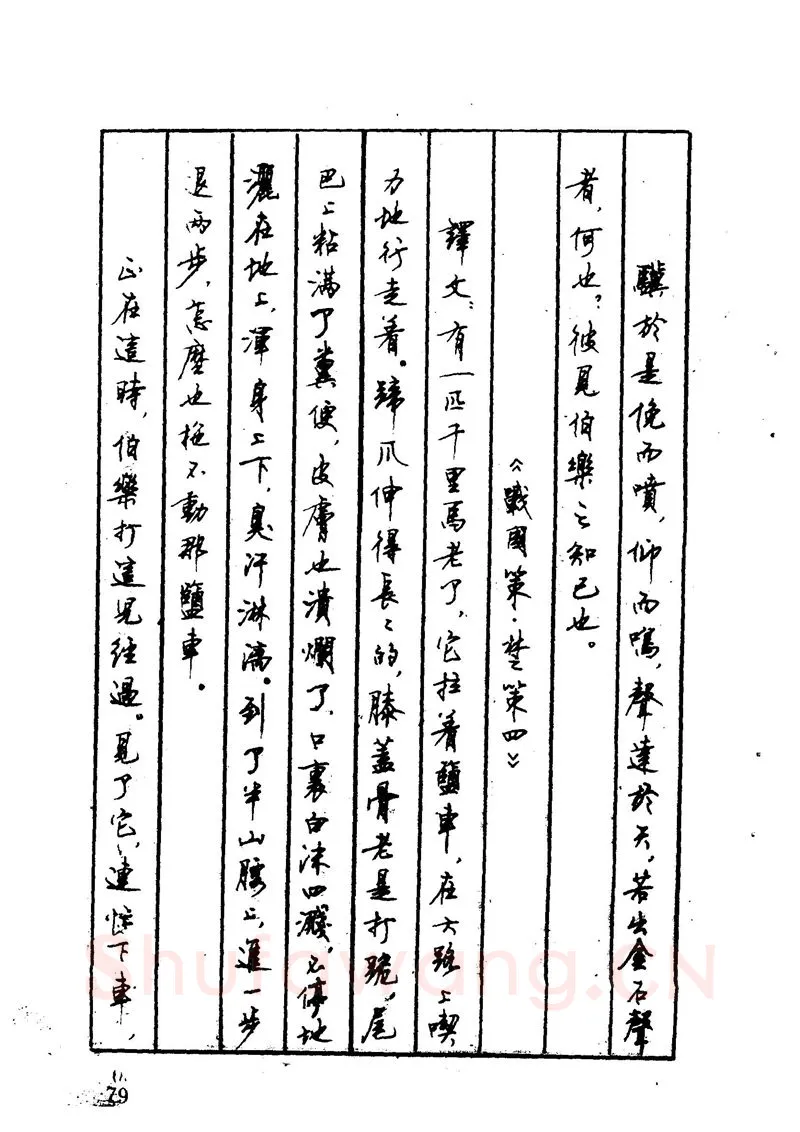 驥於是俛而噴，仰而鳴，聲達於天，若出金石聲
者，何也？彼見伯樂之知己也。
《戰國策·楚策四》
譯文：有一匹千里馬老了，它拉着鹽車，在大路上喫
力地行走着。蹄爪伸得長々的，膝蓋骨老是打跪，尾
巴上粘滿了糞便，皮膚也潰爛了，口裏白沫四濺，不停地
灑在地上，渾身上下，臭汗淋漓。到了半山腰上，進一步
退兩步，怎麼也拖不動那鹽車。
正在這時，伯樂打這兒經過。見了它，連忙下車，
79
Shufawang.CN